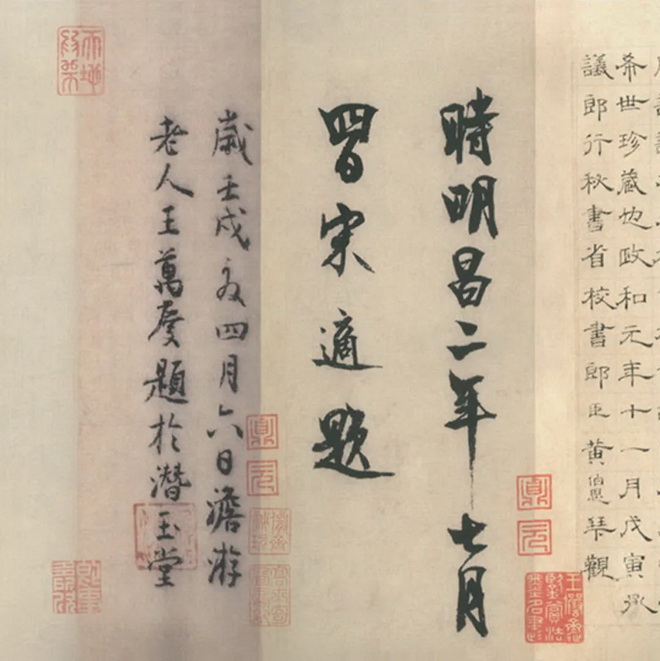 希世珍藏也政和元年十一月戊寅承
議郎行秘書省校書郎臣黃伯思琴觀
時明昌二年七月
四日宋適題
歲壬戌夏四月六日澹游
老人王萬慶題於潛玉堂